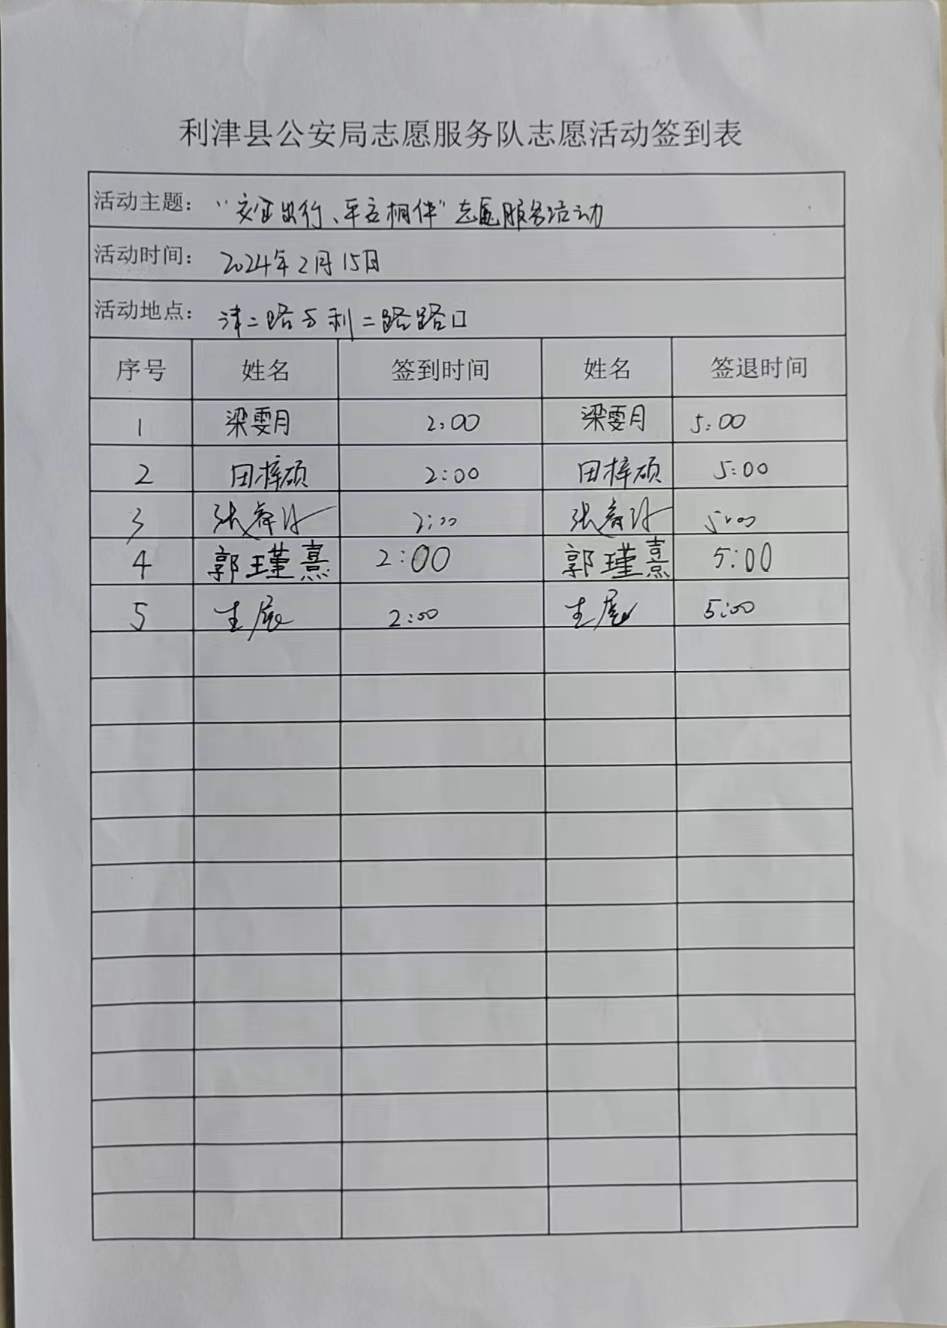 利津县公安局志愿服务队志愿活动签到表
活动主题： “文证出行、平安相伴”志愿服务活动
活动时间： 2024年2月15日
活动地点： 津二路与利二路路口
序号 姓名 签到时间 姓名 签退时间
1 梁雯月 2:00 梁雯月 5:00
2 田梓硕 2:00 田梓硕 5:00
3 张 2:00 张 5:00
4 郭瑾熹 2:00 郭瑾熹 5:00
5 2:00 5:00